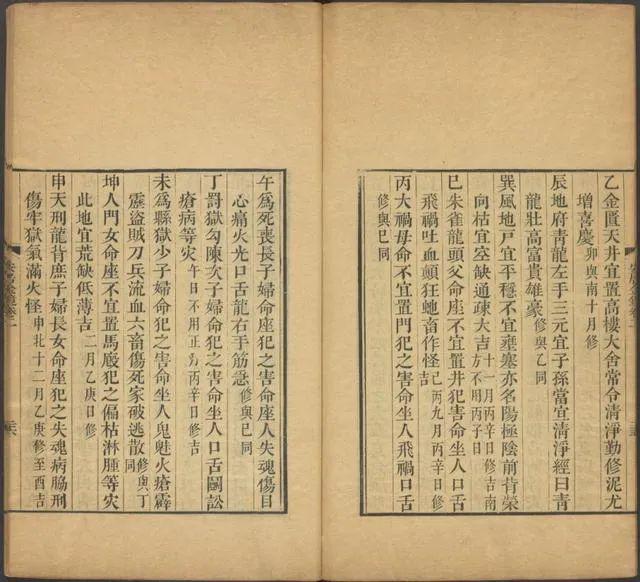 乙金匱天井宜置高樓大舍常令淸淨勤修泥尤
增喜慶 卯與南十月修
辰地府靑龍左手三元宜子孫當宜淸淨經曰靑
龍壯高富貴雄豪 修與乙同
巽風地戸宜平穩不宜壅塞亦名陽極陰前背榮
向枯宜空缺通疎大吉 十一月丙辛日修吉南方不用丙子日
巳朱雀龍頭父命座不宜置井犯害命坐人口舌
飛禍吐血顚狂虵畜作怪 丙九月丙辛日修吉
丙大禍母命不宜置門犯之害命坐人飛禍口舌
修與巳同
午爲死喪長子婦命座犯之害命座人失魂傷目
心痛火光口舌龍右手筋急 修與巳同
丁罰獄勾陳次子婦命犯之害命坐人口舌鬭訟
瘡病等灾 午日不用正丙辛日修吉
未爲縣獄少子婦命犯之害命坐人鬼魅火瘡霹
靂盜賊刀兵流血六畜傷死家破逃散 修與丁同
坤人門女命座不宜置馬廄犯之偏枯淋腫等灾
此地宜荒缺低薄吉 二月乙庚日修
申天刑龍背庶子婦長女命座犯之失魂病脇刑
傷牢獄氣滿火怪 申北十二月乙庚修至酉吉